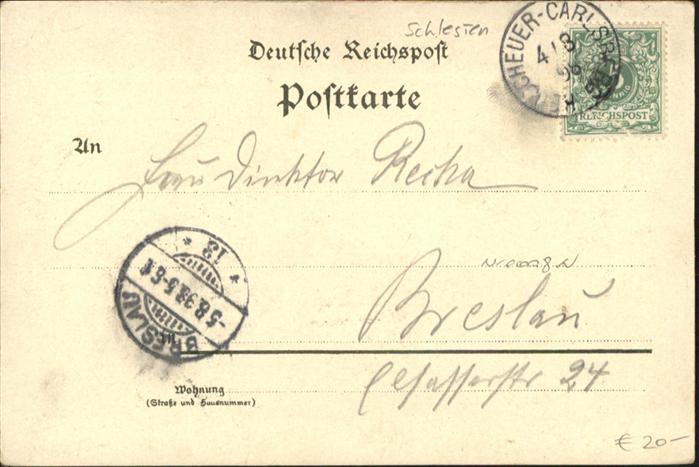 Schlesien
Deutsche Reichspost
Postkarte
SCHEUER-CARLSR
4/8
98
REICHSPOST
An
Frau Direktor Recha
* 13 *
5.8.98.5-6.N
BRESLAU
Breslau
Wohnung
(Straße und Hausnummer)
Elsasserstr 24
€ 20-